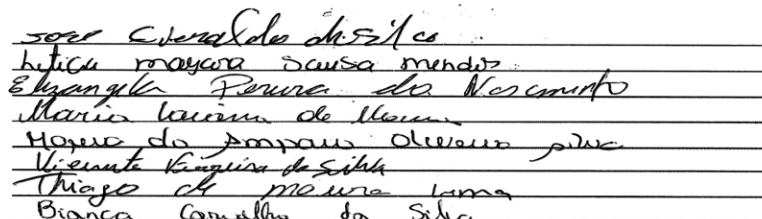 Jose Everaldo da Silva
Leticia mayara Sousa mendes
Elizangela Pereira do Nascimento
Maria de Moura
Maria do Amparo Oliveira silva
Vicente da Silva
Thiago de moura Lima
Bianca Carvalho da Silva